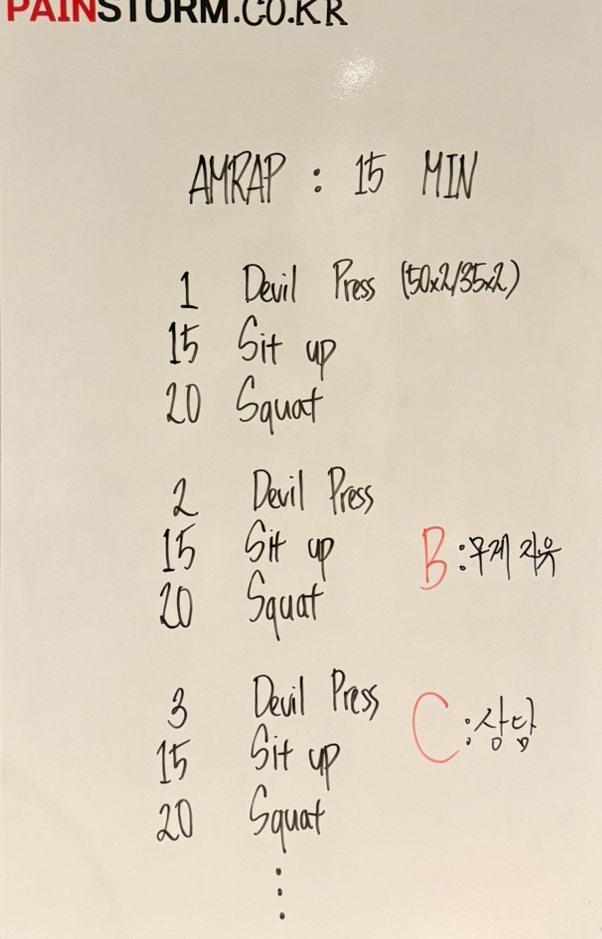 PAINSTORM.CO.KR
AMRAP : 15 MIN
1 Devil Press (50x2/35x2)
15 Sit up
20 Squat
2 Devil Press
15 Sit up
20 Squat
B : 무게 자유
3 Devil Press
15 Sit up
20 Squat
C : 상담
⋮